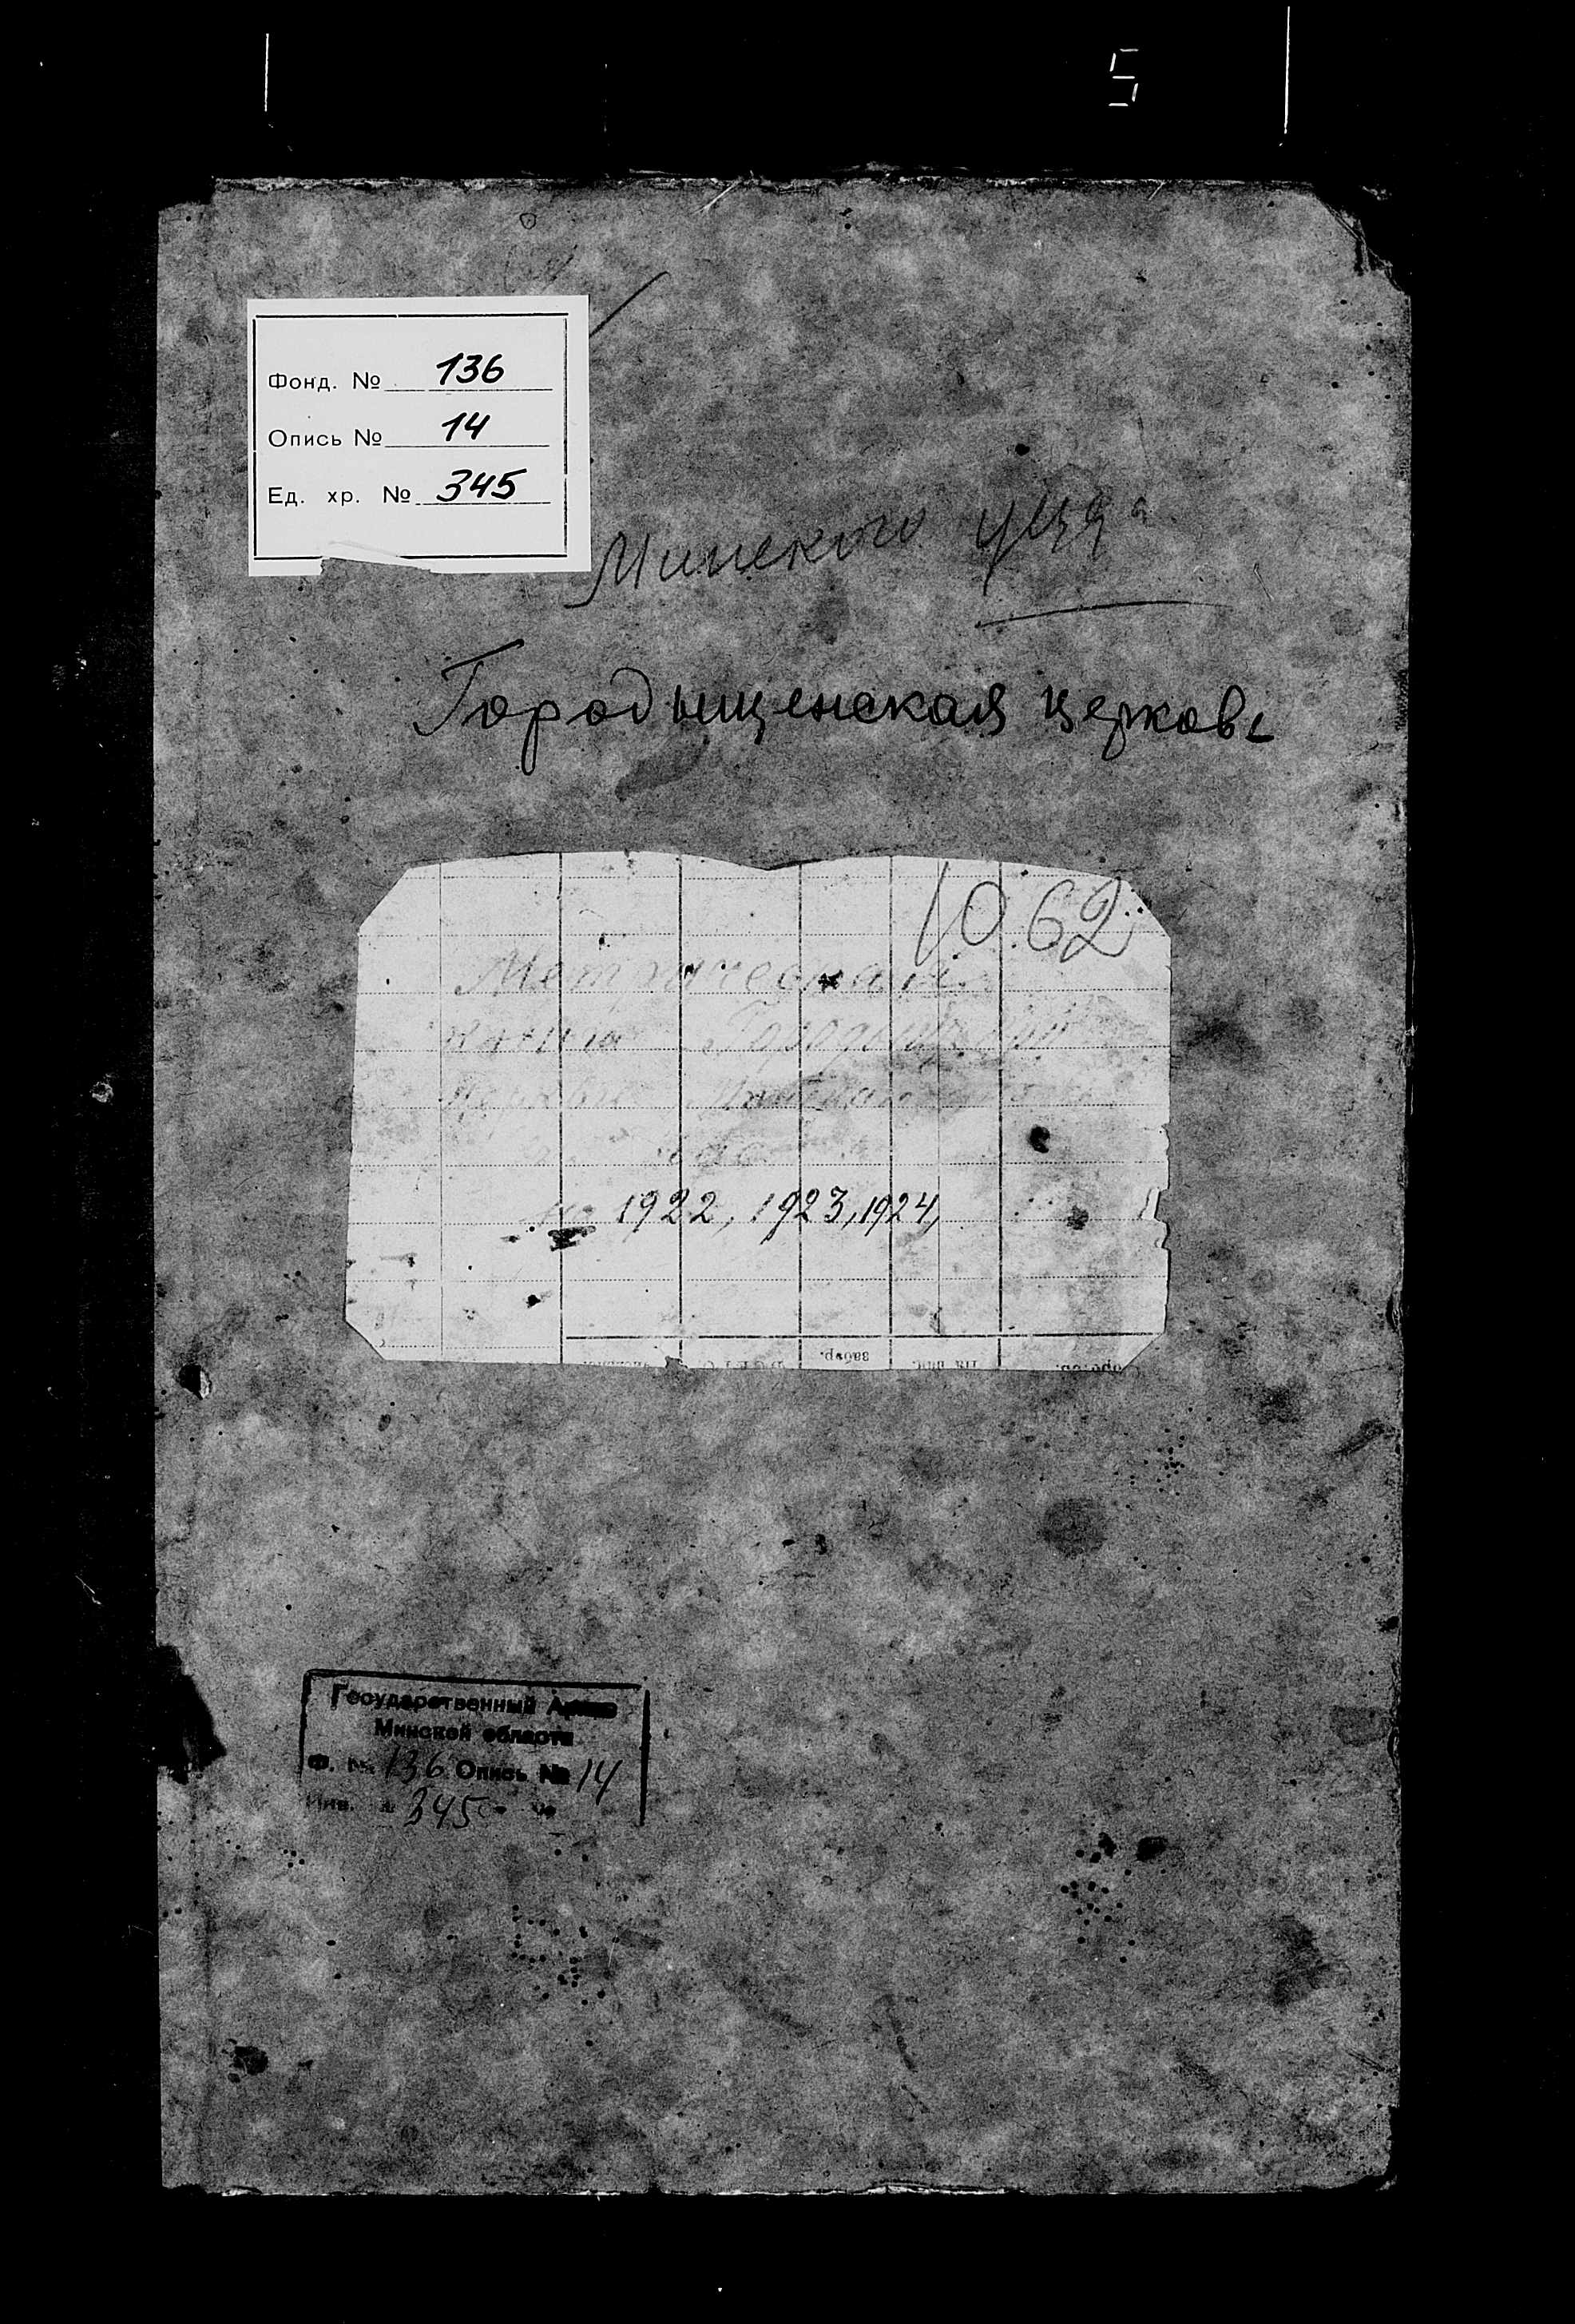 5
Фонд. № 136
Опись № 14
Ед. хр. № 345
Минского уезда
Городыщенская церковь
1062
Метрическая
книга
Церкви
на 1922, 1923, 1924,
забор.
Государственный Архив
Минской области
Ф. № 136 Опись № 14
Инв. № 345